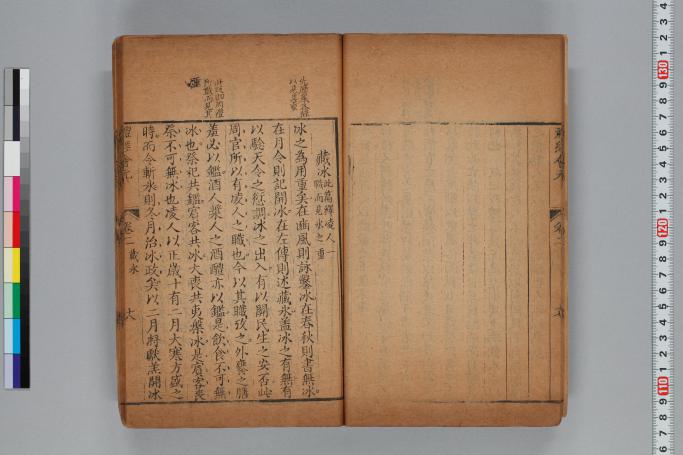 藏冰此篇釋凌人一
職而見冰之重
冰之為用重矣在豳風則詠鑿冰在春秋則書無冰
在月令則記開冰在左傳則述藏冰蓋冰之有無有
以驗天令之愆調冰之出入有以關民生之安否此
周官所以有凌人之職也今以其職攷之外饔之膳
羞必以鑑酒人漿人之酒醴亦以鑑是飲食不可無
冰也祭祀共鑑賓客共冰大喪共夷槃冰是賓客喪
祭不可無冰也凌人以正歲十有二月大寒方盛之
時而令斬冰則冬月治冰政矣以二月將獻羔開冰
卷二
藏冰